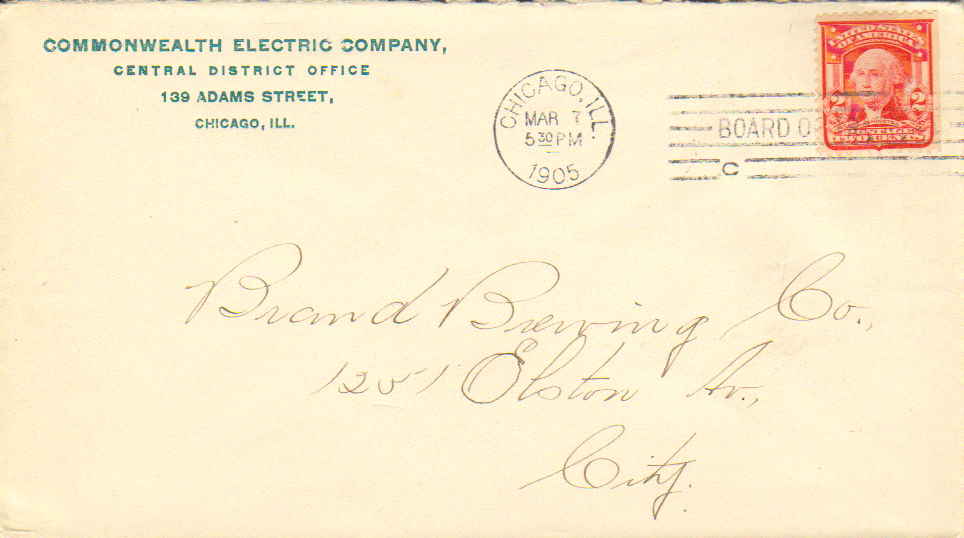 COMMONWEALTH ELECTRIC COMPANY,
CENTRAL DISTRICT OFFICE
139 ADAMS STREET,
CHICAGO, ILL.
CHICAGO, ILL.
MAR 7
5 30 PM
1905
BOARD O
C
UNITED STATES
OF AMERICA
2 2
POSTAGE
TWO CENTS
Brand Brewing Co.,
1251 Elston Av.,
City.